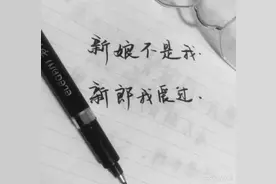 新娘不是我.
新郎我爱过.